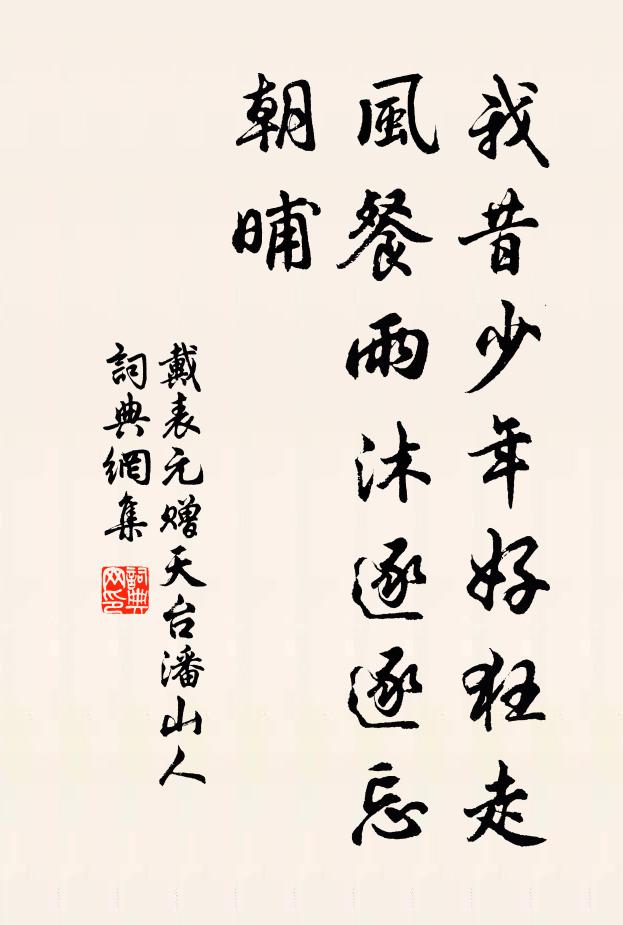 我昔少年好狂走
風餐雨沐逐逐忘
朝晡
戴表元赠天台潘山人
詞典網集
詞典
网印